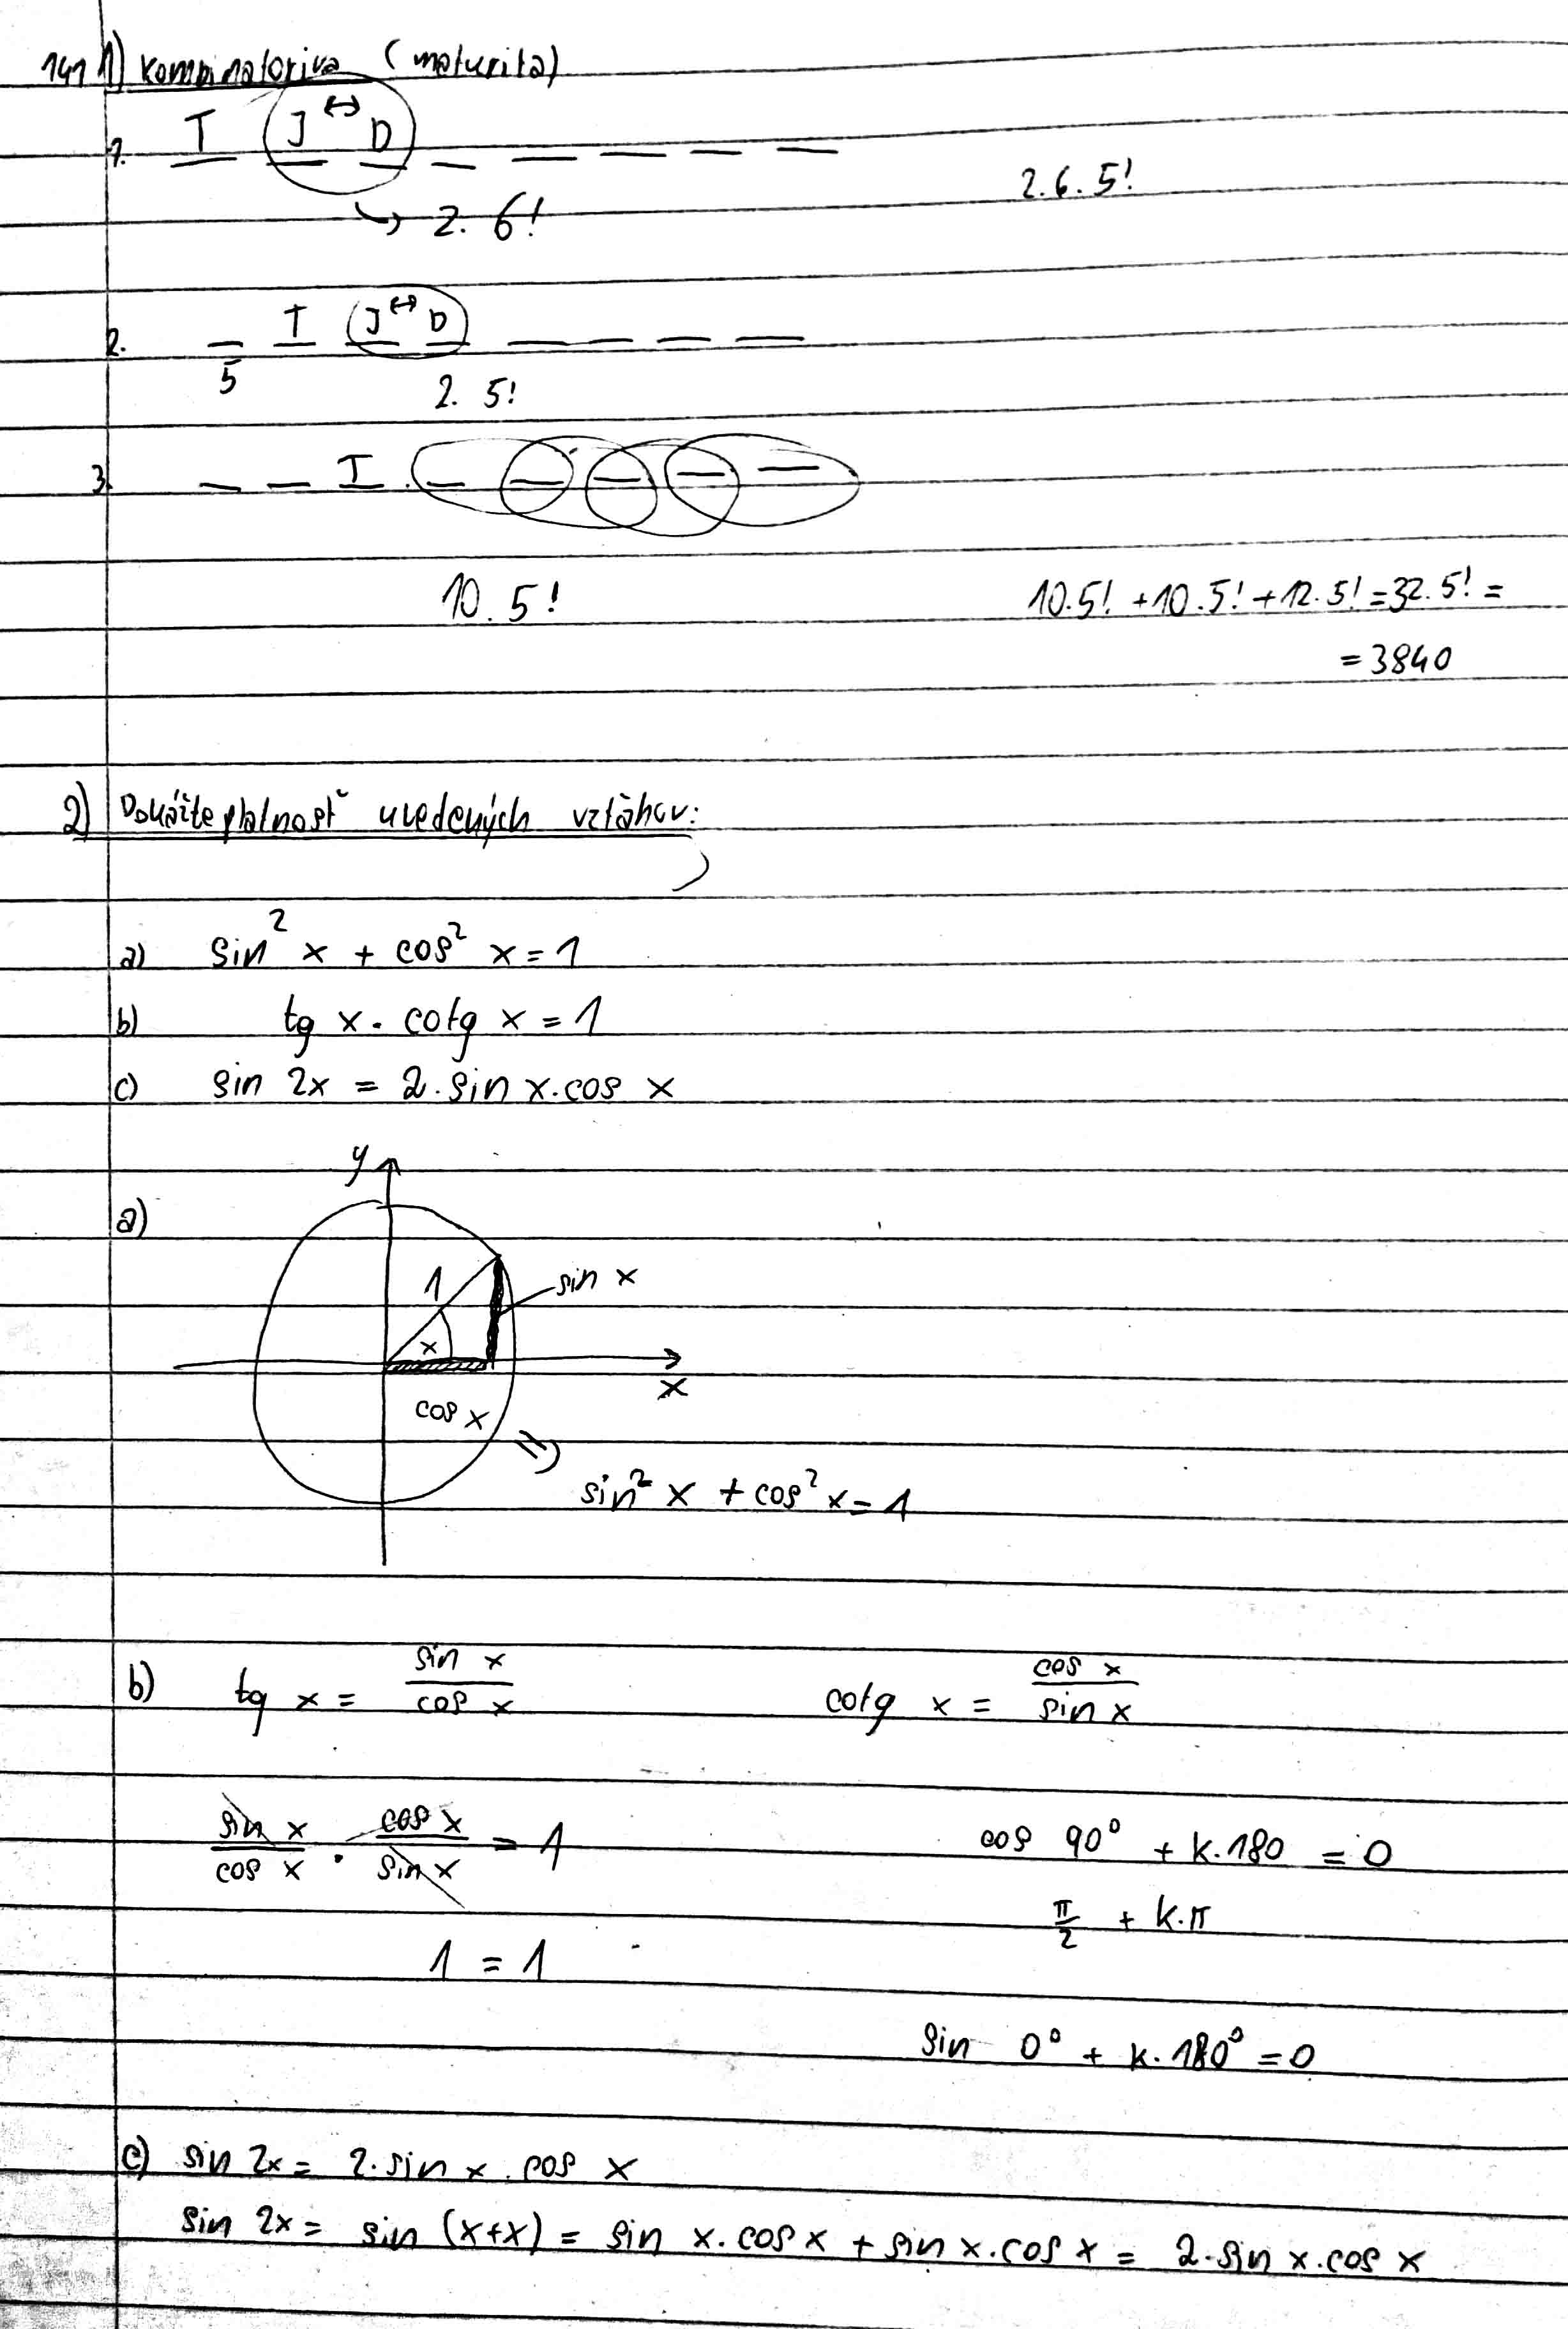 141 1) Kombinatorika (maturita)
1. T J ↔ D _ _ _ _ _
2.6.5!
↳ 2. 6!
2. _ T J ↔ D _ _ _ _
5
2. 5!
3. _ _ T _ _ _ _ _
10.5!
10.5! + 10.5! + 12.5! = 32.5! =
= 3840
2) Dokážte platnosť uvedených vzťahov:
a) sin² x + cos² x = 1
b) tg x . cotg x = 1
c) sin 2x = 2.sin x.cos x
y
a)
1
sin x
x
x
cos x
⇒
sin² x + cos² x = 1
b) tg x = sin x / cos x cotg x = cos x / sin x
sin x / cos x . cos x / sin x = 1 cos 90° + k.180 = 0
π/2 + k.π
1 = 1
sin 0° + k.180° = 0
c) sin 2x = 2.sin x.cos x
sin 2x = sin (x+x) = sin x.cos x + sin x.cos x = 2.sin x.cos x